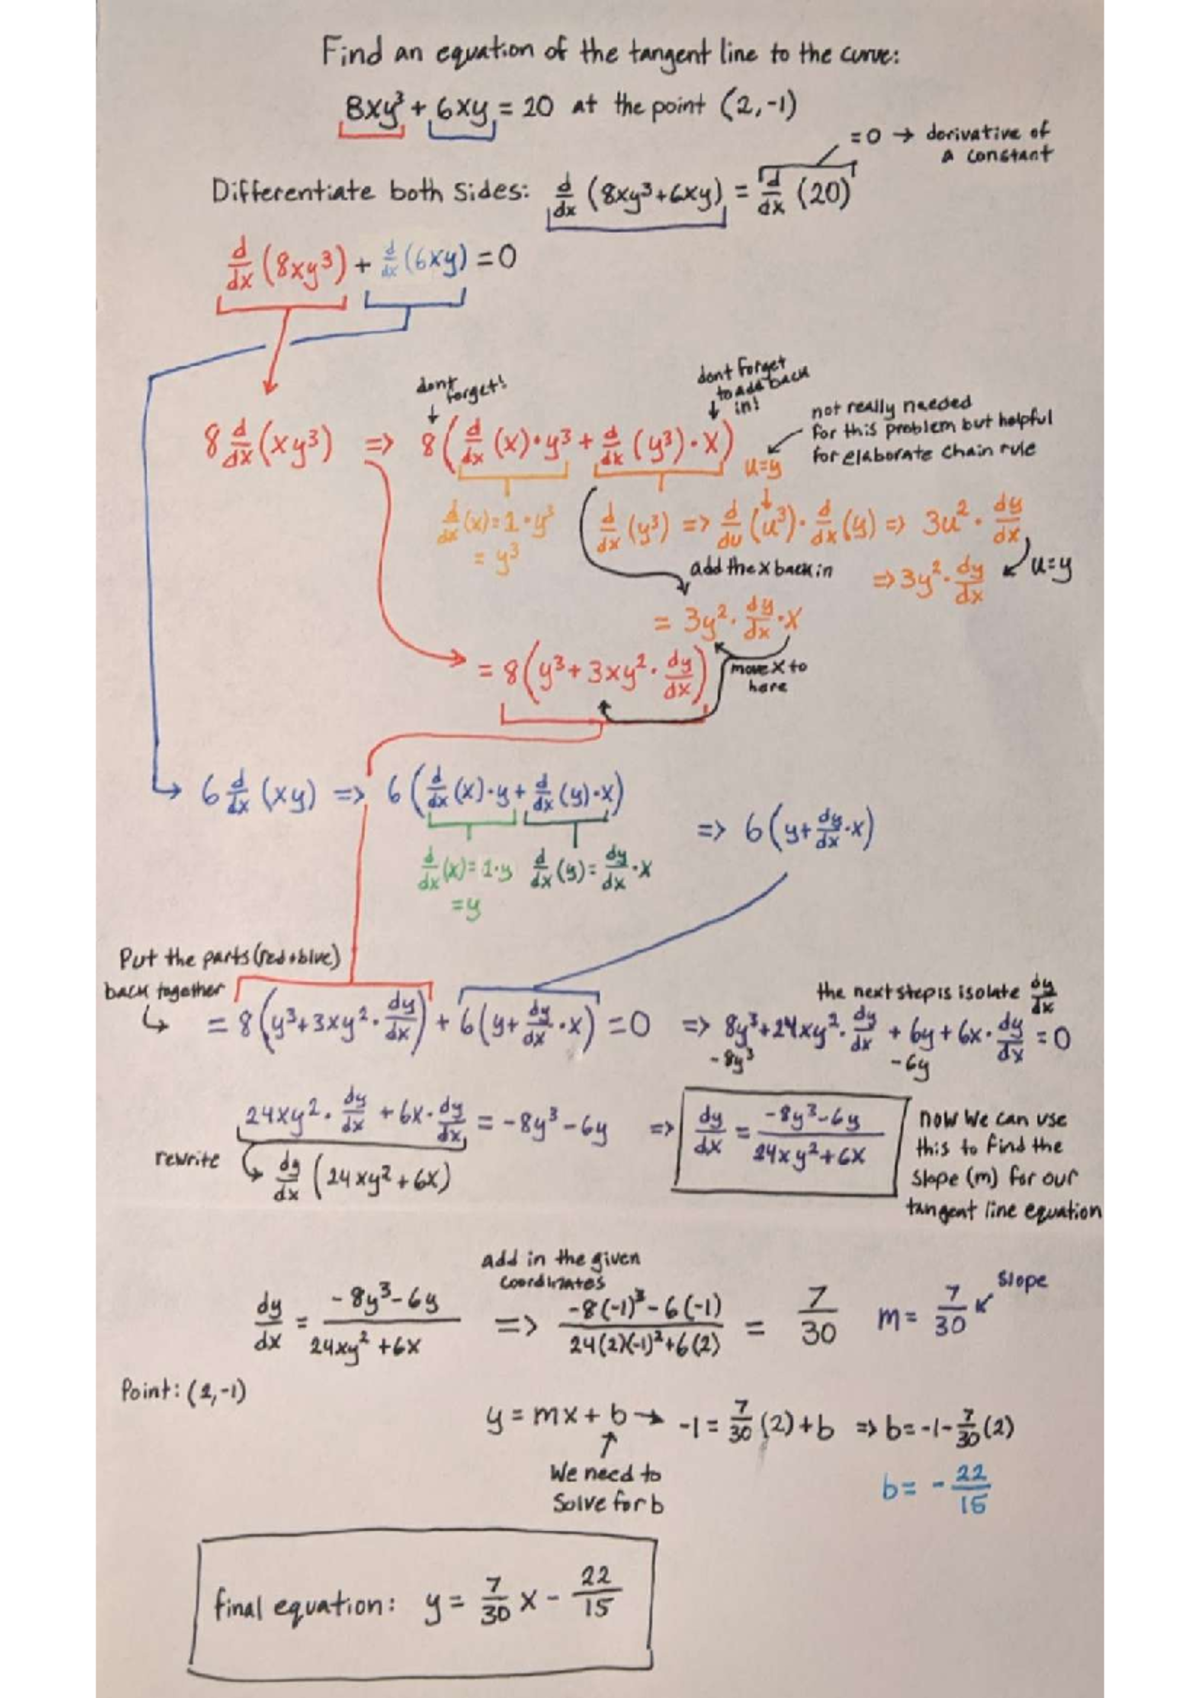 Find an equation of the tangent line to the curve:
8xy³ + 6xy = 20 at the point (2,-1)
= 0 → derivative of
a constant
Differentiate both sides: d/dx (8xy³+6xy) = d/dx (20)
d/dx (8xy³) + d/dx (6xy) = 0
dont forget!
dont forget
to add back
in!
not really needed
for this problem but helpful
for elaborate chain rule
8 d/dx (xy³) => 8 ( d/dx (x)·y³ + d/dx (y³)·x )
u=y
d/dx (x)=1·y³
= y³
d/dx (y³) => d/du (u³)· d/dx (y) => 3u²· dy/dx
add the x back in
=> 3y²· dy/dx
u=y
= 3y²· dy/dx ·x
= 8 ( y³+3xy²· dy/dx )
move x to
here
6 d/dx (xy) => 6 ( d/dx (x)·y + d/dx (y)·x )
=> 6 ( y+ dy/dx ·x )
d/dx (x)=1·y d/dx (y)= dy/dx ·x
=y
Put the parts (red+blue)
back together
the next step is isolate dy/dx
= 8 ( y³+3xy²· dy/dx ) + 6 ( y+ dy/dx ·x ) = 0 => 8y³+24xy²· dy/dx + 6y + 6x· dy/dx = 0
-8y³ -6y
24xy²· dy/dx + 6x· dy/dx = -8y³-6y => dy/dx = -8y³-6y / 24xy²+6x
rewrite dy/dx (24xy²+6x)
now we can use
this to find the
slope (m) for our
tangent line equation
add in the given
coordinates
dy/dx = -8y³-6y / 24xy²+6x => -8(-1)³-6(-1) / 24(2)(-1)²+6(2) = 7/30 m= 7/30 slope
Point: (2,-1)
y = mx + b → -1 = 7/30 (2)+b => b=-1- 7/30 (2)
We need to
Solve for b
b= - 22/15
final equation: y = 7/30 x - 22/15